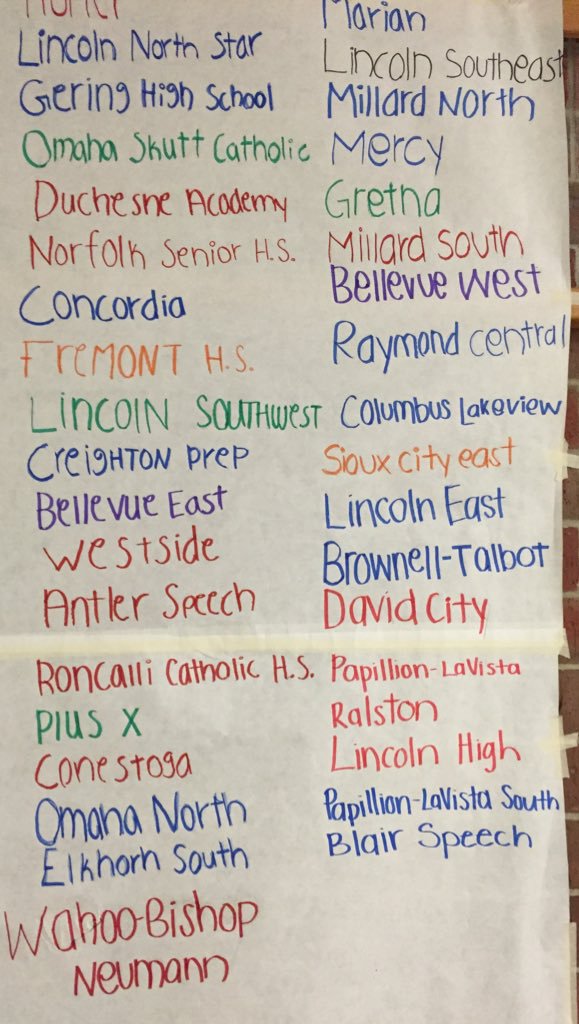 Lincoln North Star
Gering High School
Omaha Skutt Catholic
Duchesne Academy
Norfolk Senior H.S.
Concordia
FREMONT H.S.
LINCOLN SOUTHWEST
CREIGHTON PREP
Bellevue East
Westside
Antler Speech
Roncalli Catholic H.S.
PIUS X
Conestoga
Omaha North
Elkhorn South
Wahoo-Bishop
Neumann
Marian
Lincoln Southeast
Millard North
Mercy
Gretna
Millard South
Bellevue West
Raymond central
Columbus Lakeview
Sioux city east
Lincoln East
Brownell-Talbot
David City
Papillion-LaVista
Ralston
Lincoln High
Papillion-LaVista South
Blair Speech